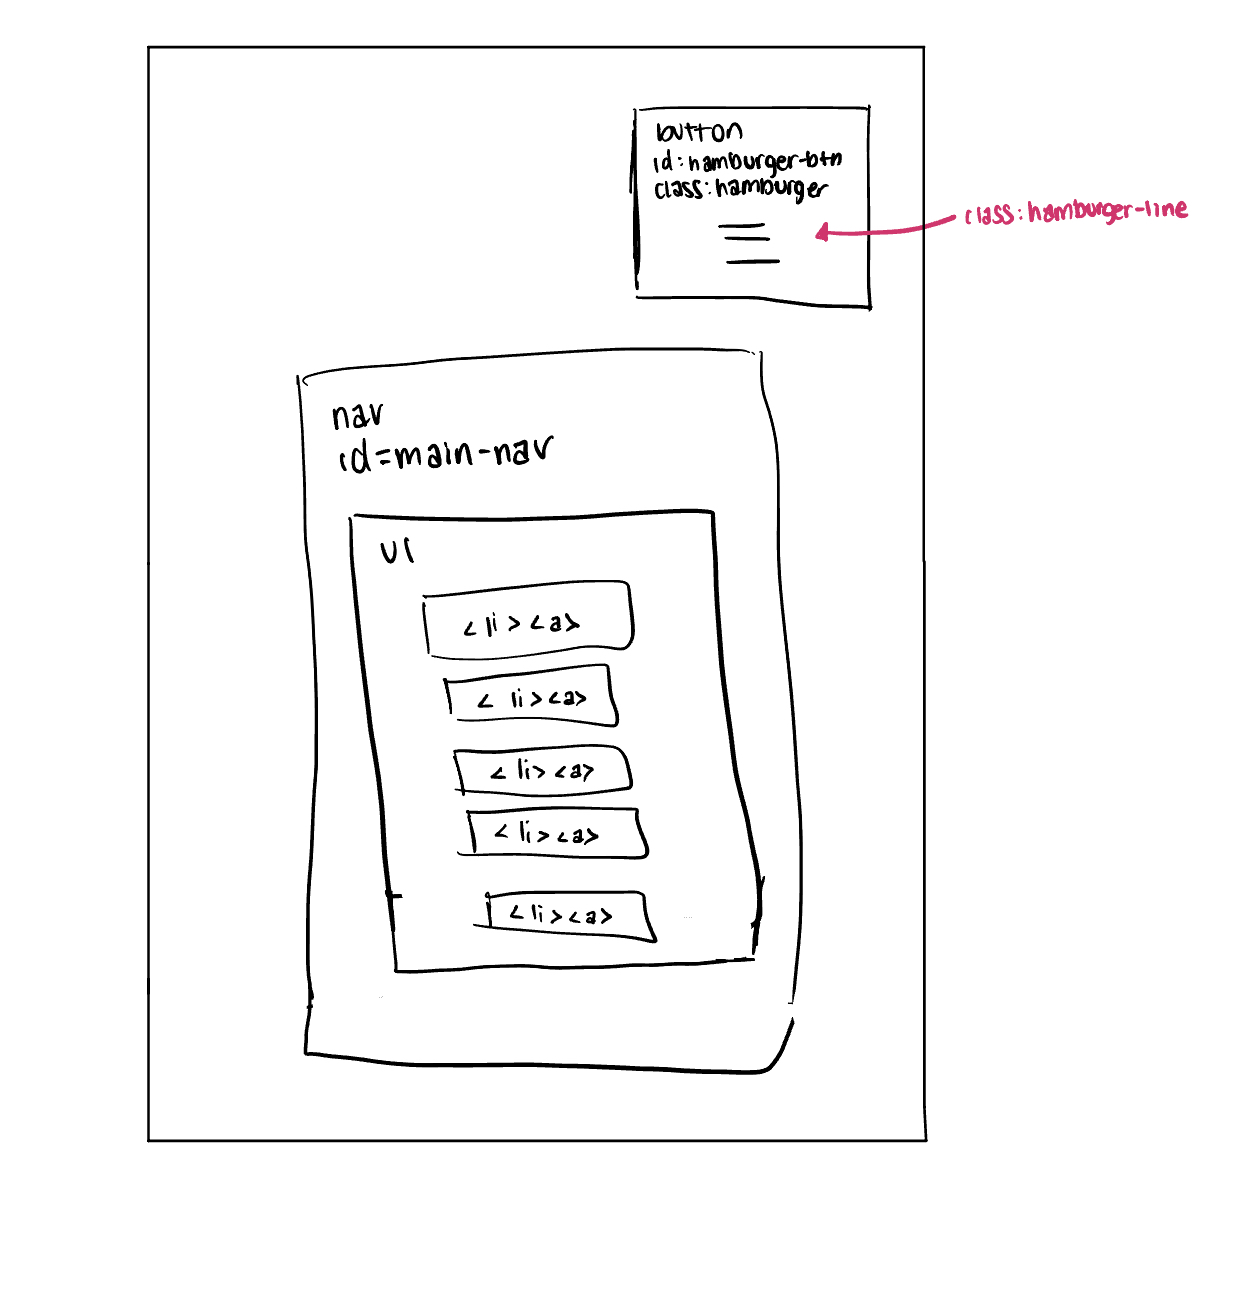 button
id:hamburger-btn
class:hamburger
class:hamburger-line
nav
id=main-nav
ul
<li><a>
<li><a>
<li><a>
<li><a>
<li><a>